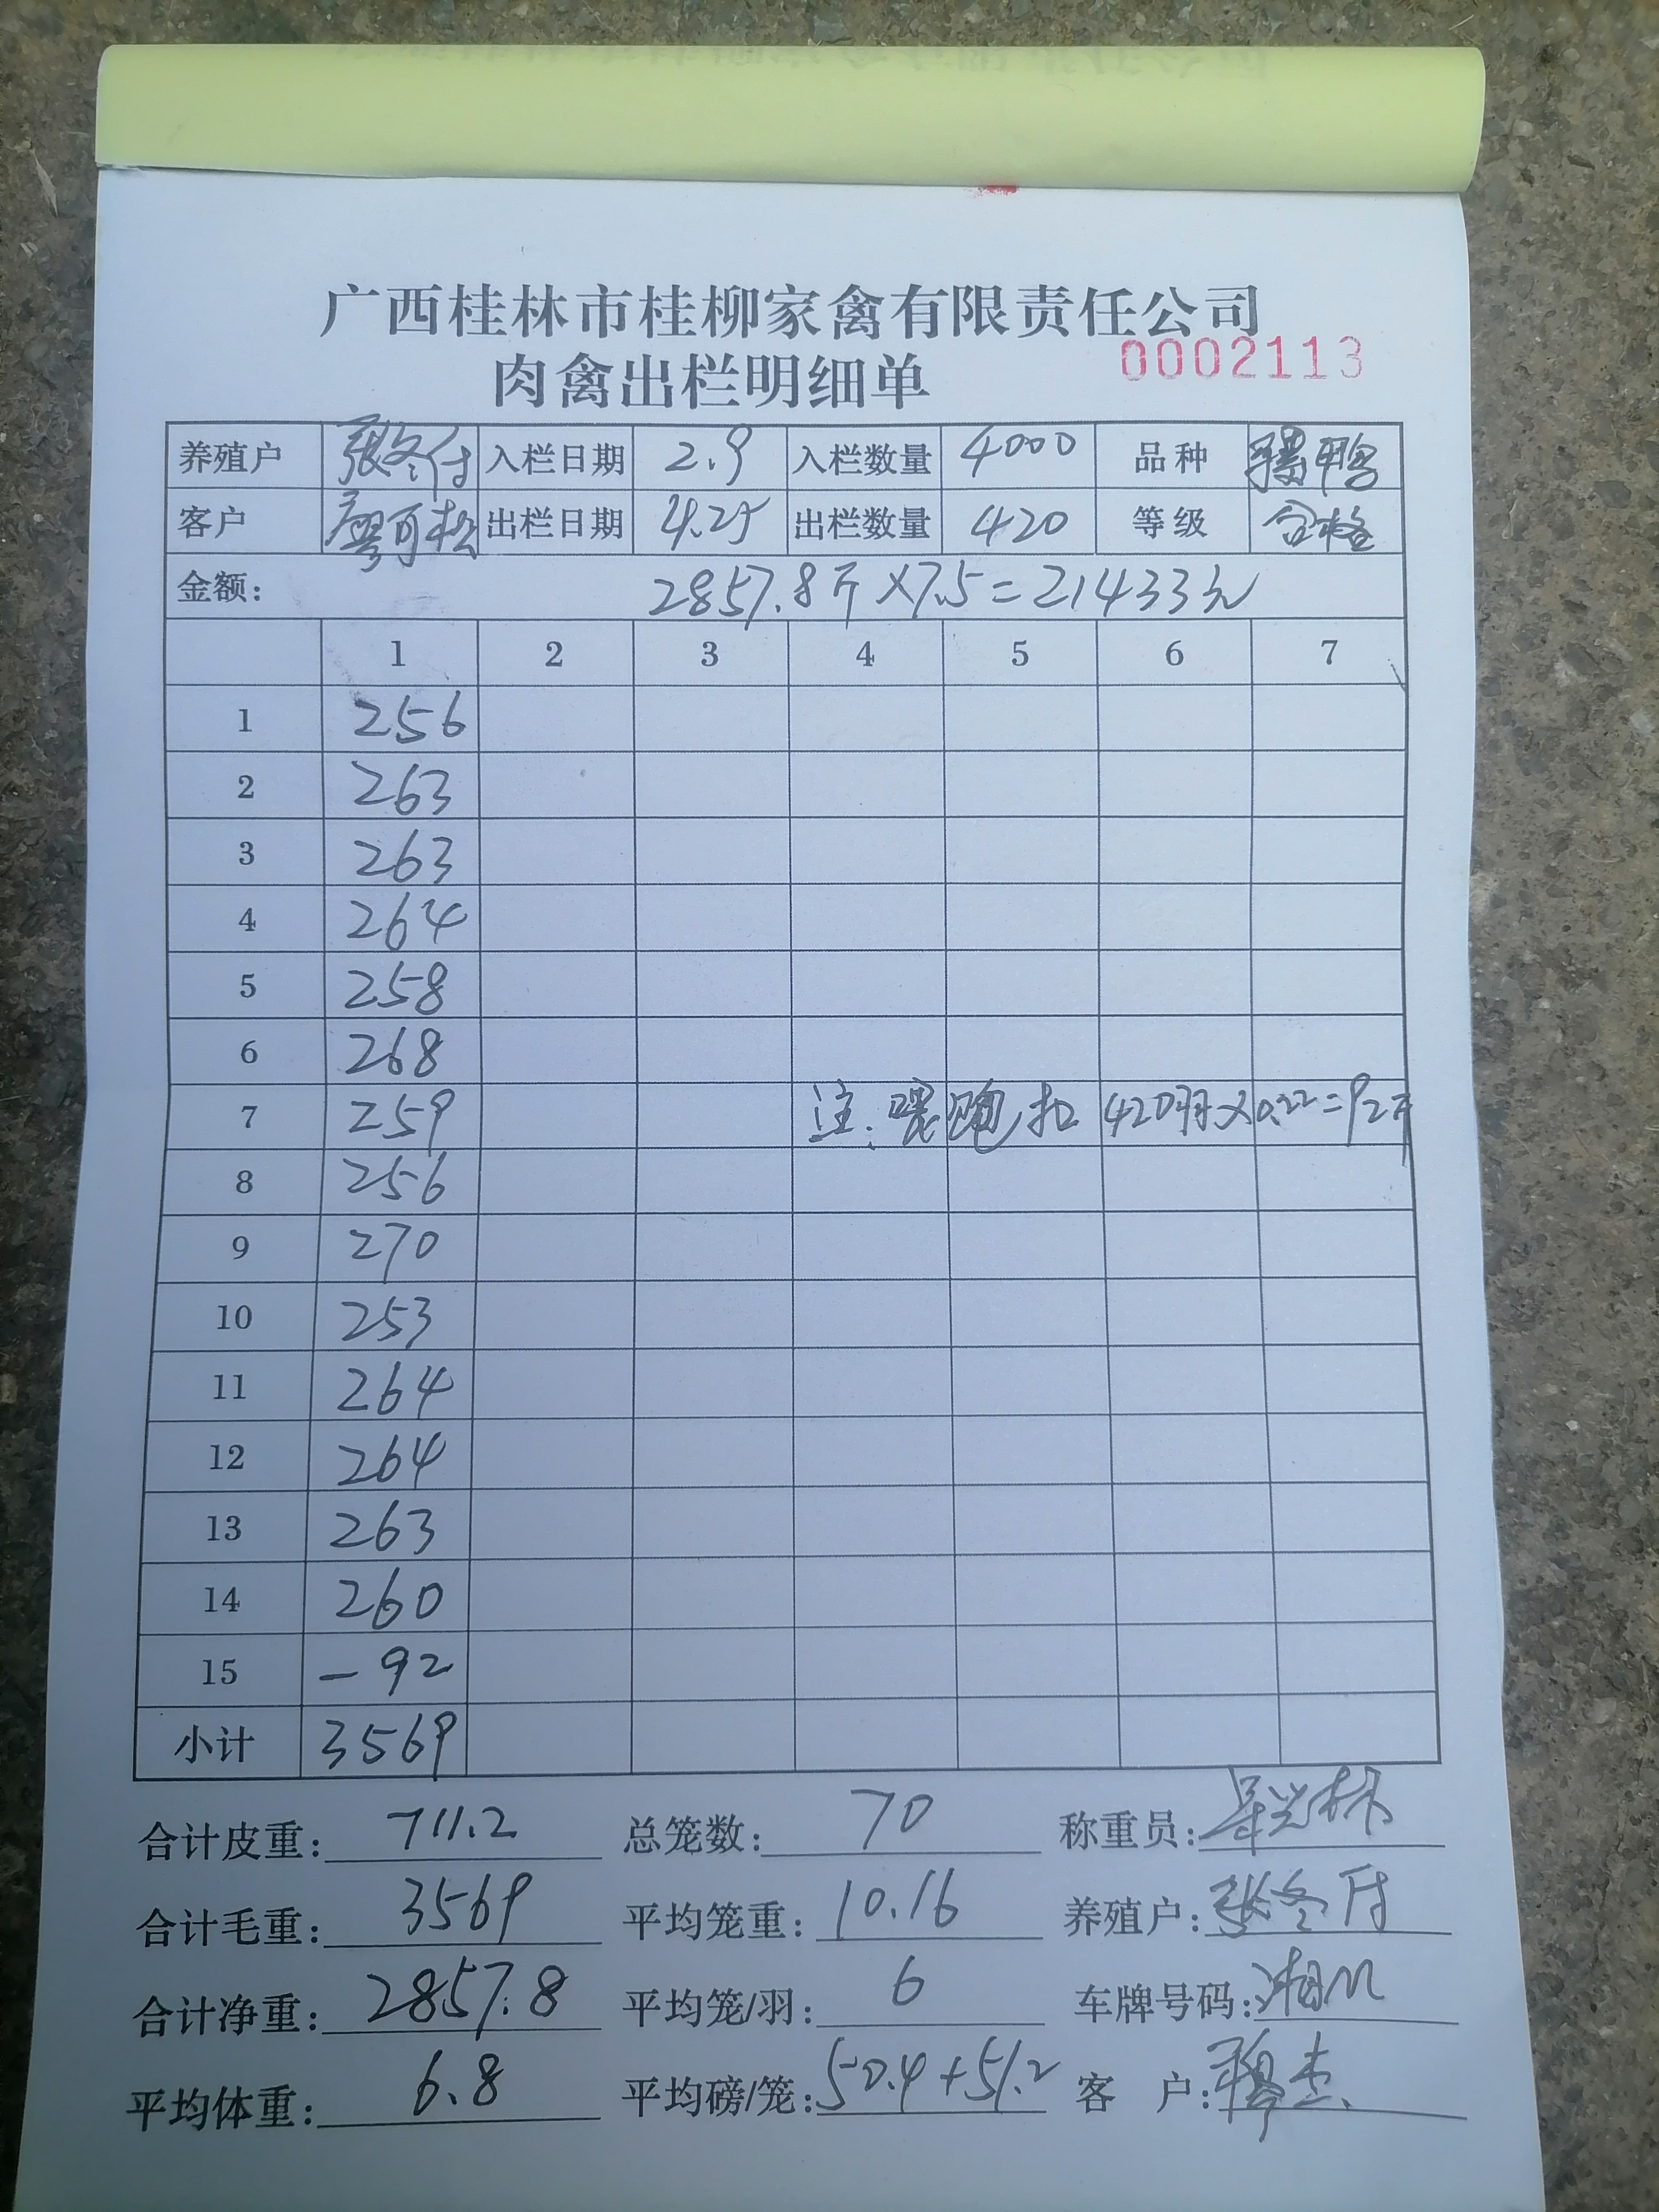 广西桂林市桂柳家禽有限责任公司
肉禽出栏明细单 0002113
养殖户 张冬付 入栏日期 2.9 入栏数量 4000 品种 鸭
客户 廖可松 出栏日期 4.25 出栏数量 420 等级 合格
金额: 2857.8斤×7.5=21433元
1 2 3 4 5 6 7
1 256
2 263
3 263
4 264
5 258
6 268
7 259 注: 喂 扣 420羽×0.22=92斤
8 256
9 270
10 253
11 264
12 264
13 263
14 260
15 -92
小计 3569
合计皮重: 711.2 总笼数: 70 称重员:
合计毛重: 3569 平均笼重: 10.16 养殖户: 张冬付
合计净重: 2857.8 平均笼/羽: 6 车牌号码: 湘
平均体重: 6.8 平均磅/笼: 50.4+51.2 客 户: